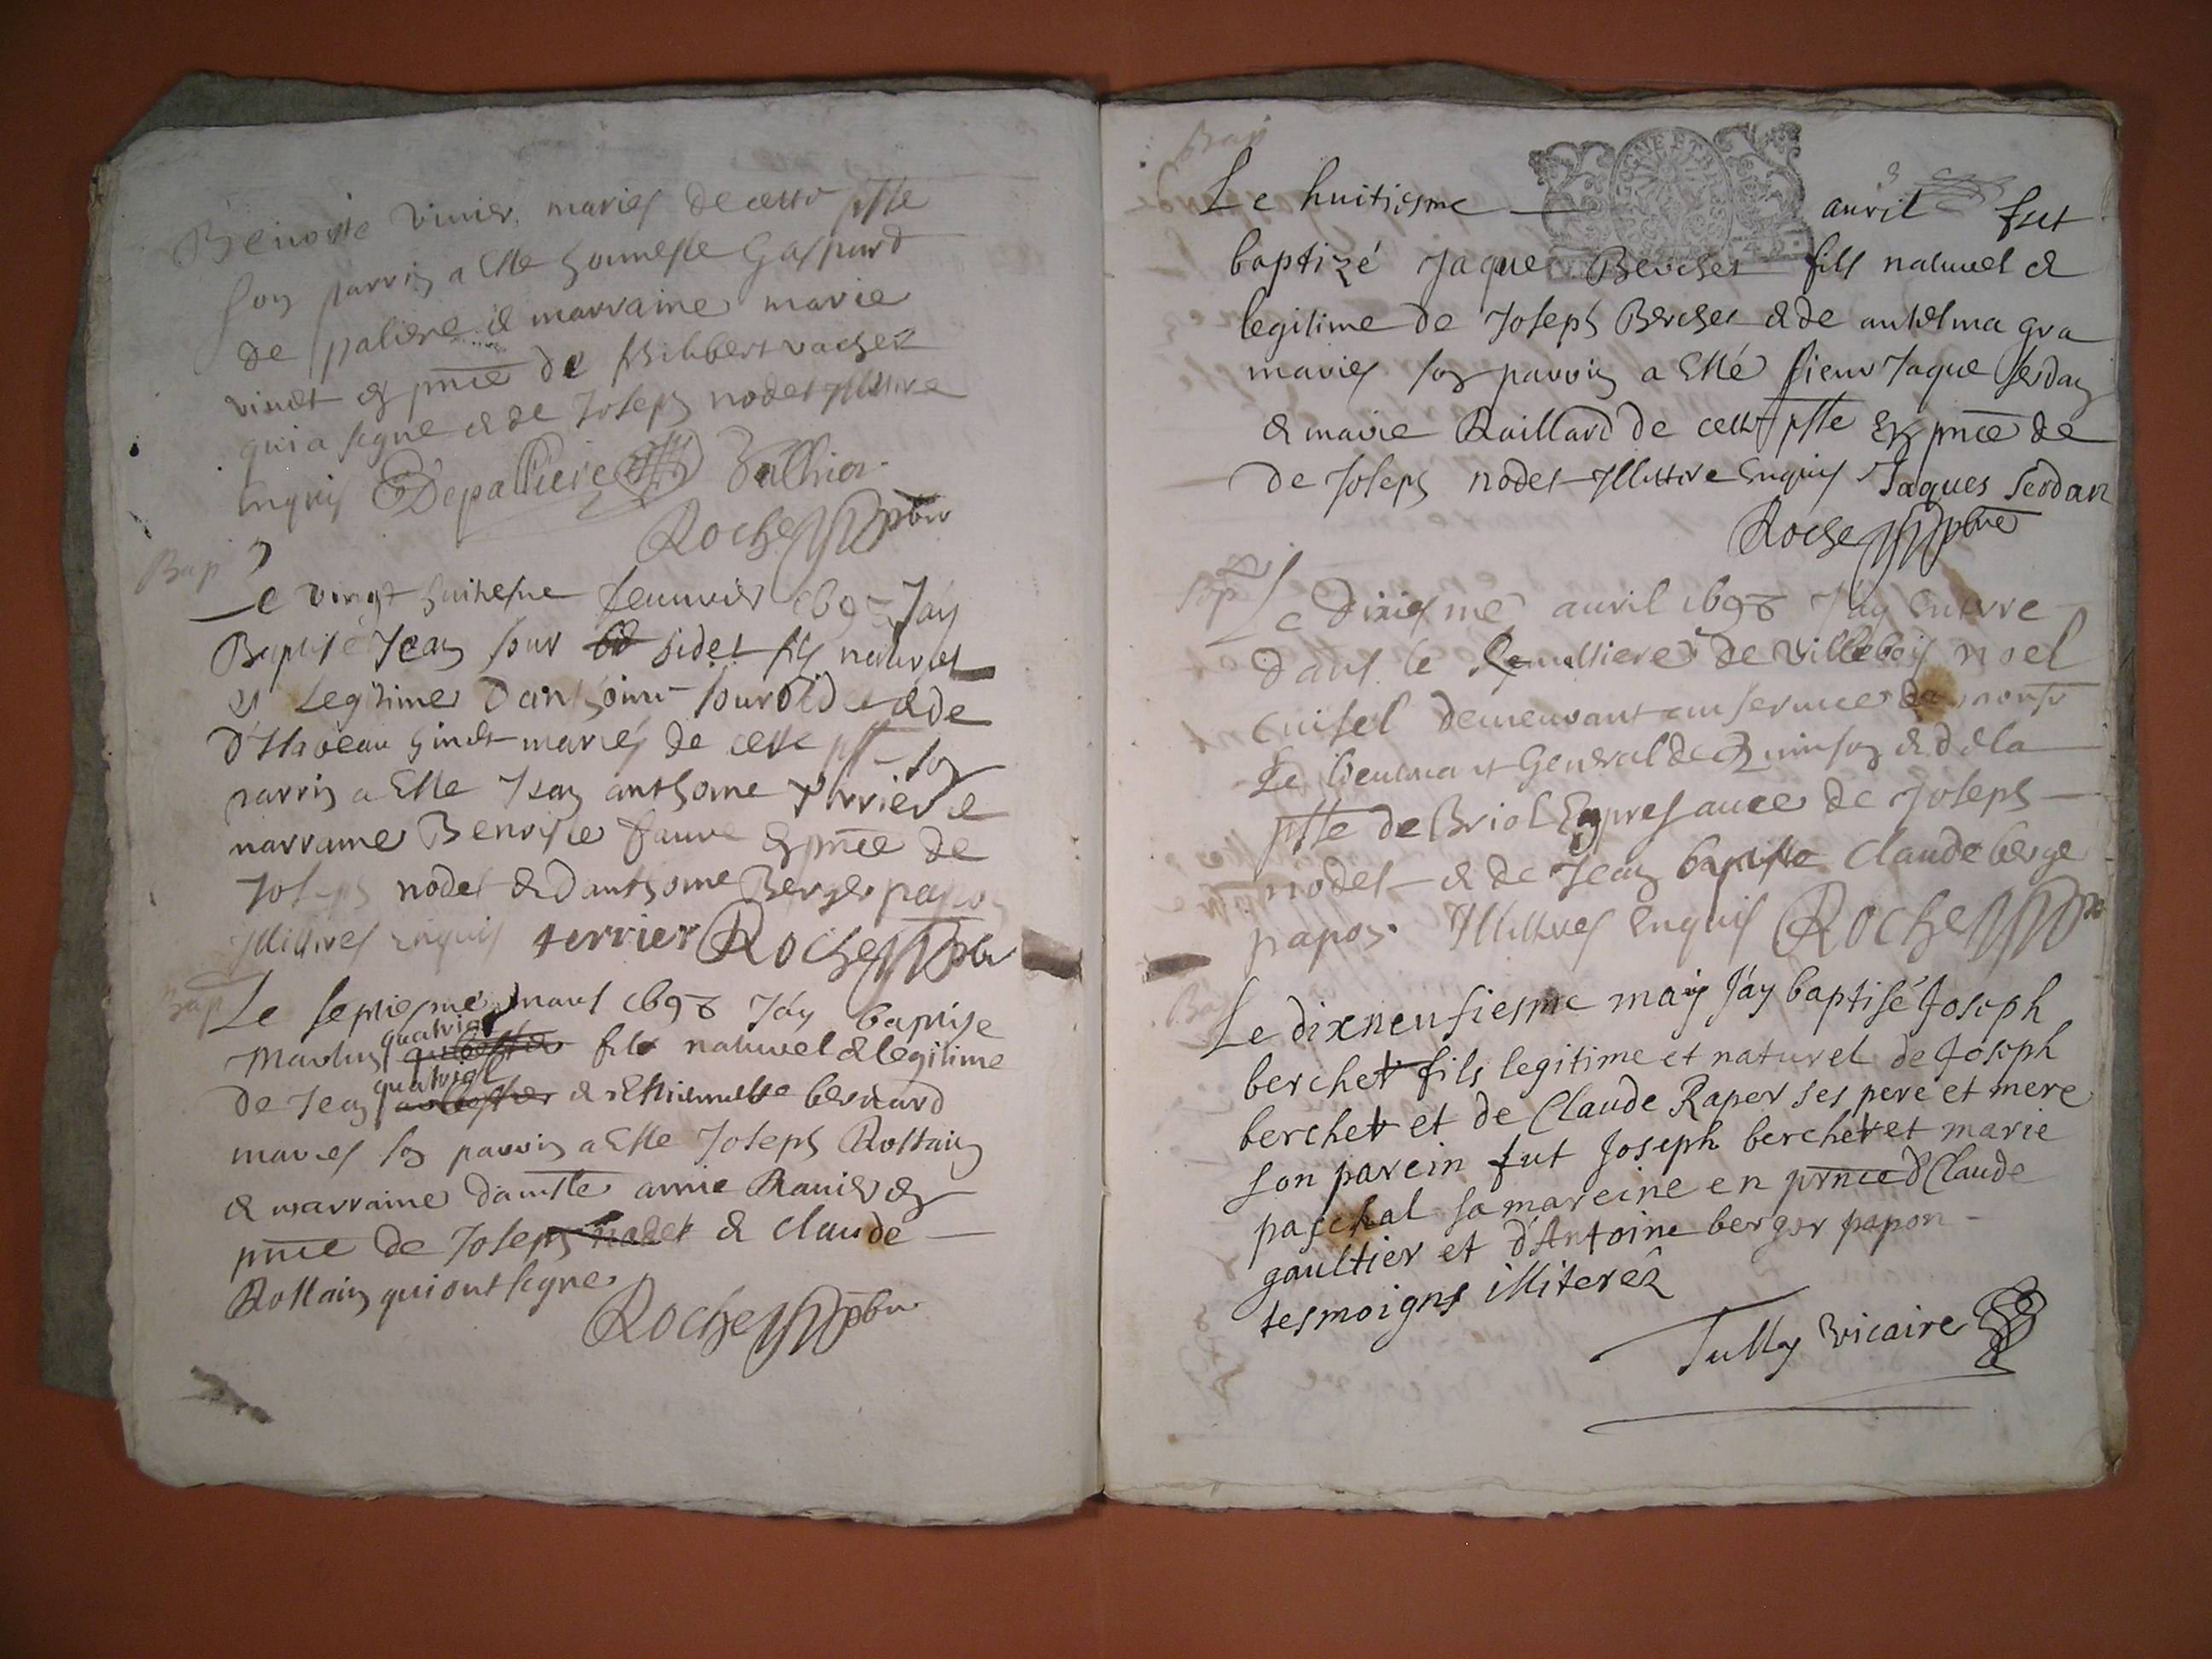 Benoiste vinier mariés de cette psse
son parrin a este honneste Gaspard
de paliere & marraine marie
vindt en pnce de philibert vacher
qui a signé & de Joseph nodet illittre
enquis Depalliere
Roche pbre
Bap
Le vingt huitiesme Jeanvier 1698 Jay
Baptisé Jean sour didet fils naturel
et Legitime d'anthoine sourdidet & de
Gindt mariés de cette psse son
parrin a este Jean anthoine terrier &
marraine Benoiste faure en pnce de
Joseph nodet & danthoine Berger papon
illittres enquis terrier Roche pbr
Bap
Le septiesme mars 1698 Jay baptise
quatrier
Martin fils naturel & legitime
quatrier
de Jean & de Thiennette bernard
mariés son parrin a este Joseph Rostain
& marraine damslle anne Ravier en
pnce de Joseph nodet & claude
Rostain qui ont signe
Roche pbre
Bap
Le huitiesme avril fut
baptizé Jaque Berchet fils naturel &
legitime de Joseph Berchet & de anthelma gra
mariés son parrin a esté sieur Jaque serdan
& marie Raillard de cette psse en pnce de
de Joseph nodet illittre enquis Jaques Serdan
Roche pbre
Sep
Le dixiesme avril 1698 Jay enterre
dans le semettiere de villebois noel
cuisel demeurant au service de monsr
Le lieutenant General de & de la
psse de Briol en presance de Joseph
nodet & de Jean baptiste claude berge
papon illittres enquis Roche pb
Bap
Le dixneufiesme maij J'ay baptisé Joseph
berchet fils legitime et naturel de Joseph
berchet et de Claude Raper ses pere et mere
son parein fut Joseph berchet et marie
paschal sa mareine en prnce d Claude
gaultier et d'Antoine berger papon
tesmoigns illiterés
Tully vicaire